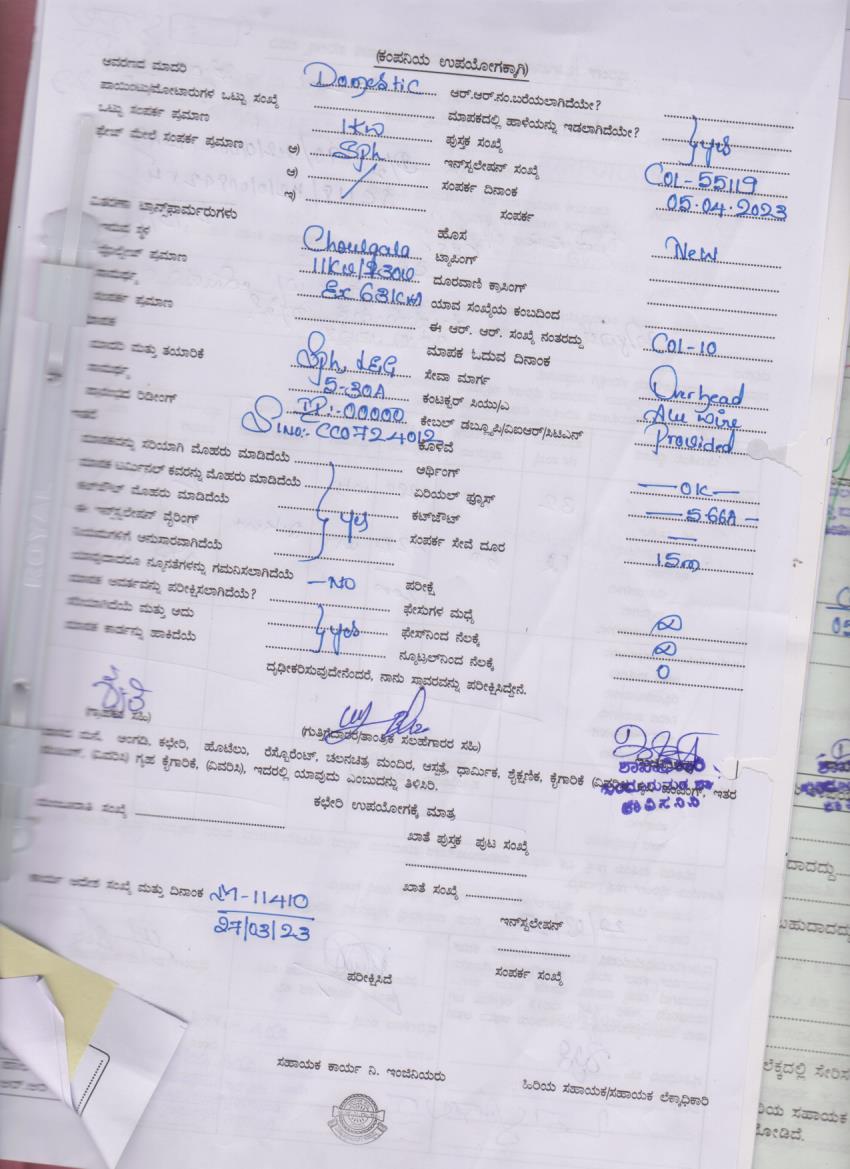 (ಕಂಪನಿಯ ಉಪಯೋಗಕ್ಕಾಗಿ)
ಆವರಣದ ಮಾದರಿ Domestic ಆರ್.ಆರ್.ನಂ.ಬರೆಯಲಾಗಿದೆಯೇ?
ಪಾಯಿಂಟು/ಮೋಟಾರುಗಳ ಒಟ್ಟು ಸಂಖ್ಯೆ ಮಾಪಕದಲ್ಲಿ ಹಾಳೆಯನ್ನು ಇಡಲಾಗಿದೆಯೇ? } yes
ಒಟ್ಟು ಸಂಪರ್ಕ ಪ್ರಮಾಣ 1KW ಪುಸ್ತಕ ಸಂಖ್ಯೆ
ಫೇಜ್ ಮೇಲೆ ಸಂಪರ್ಕ ಪ್ರಮಾಣ ಅ) Sph ಇನ್‌ಸ್ಟಲೇಷನ್ ಸಂಖ್ಯೆ COL-55119
ಆ) ಸಂಪರ್ಕ ದಿನಾಂಕ 05.04.2023
ಇ) ಸಂಪರ್ಕ
ವಿತರಣಾ ಟ್ರಾನ್ಸ್‌ಫಾರ್ಮರುಗಳು ಹೊಸ New
ಸ್ಥಳ Choulgala ಟ್ಯಾಪಿಂಗ್
ವೋಲ್ಟೇಜ್ ಪ್ರಮಾಣ ದೂರವಾಣಿ ಕ್ರಾಸಿಂಗ್
ಸಾಮರ್ಥ್ಯ Ex 63KVA ಯಾವ ಸಂಖ್ಯೆಯ ಕಂಬದಿಂದ
ಸಂಪರ್ಕ ಪ್ರಮಾಣ ಈ ಆರ್. ಆರ್. ಸಂಖ್ಯೆ ನಂತರದ್ದು COL-10
ಮಾಪಕ ಮಾಪಕ ಓದುವ ದಿನಾಂಕ
ಮಾದರಿ ಮತ್ತು ತಯಾರಿಕೆ Sph, L&G ಸೇವಾ ಮಾರ್ಗ Overhead
ಸಾಮರ್ಥ್ಯ 5-30A ಕಂಟಕ್ಟರ್ ಸಿಯು/ಎ Alu wire
ಪ್ರಾರಂಭದ ರಿಡಿಂಗ್ IR:-00000 ಕೇಬಲ್ ಡಬ್ಲ್ಯೂಪಿ/ಐಆರ್/ಸಿಟಿಎನ್ Provided
Sl no:- CC0724012 ಕೊಳವೆ
ಮಾಪಕವನ್ನು ಸರಿಯಾಗಿ ಮೊಹರು ಮಾಡಿದೆಯೆ ಆರ್ಥಿಂಗ್ —OK—
ಮಾಪಕ ಟರ್ಮಿನಲ್ ಕವರನ್ನು ಮೊಹರು ಮಾಡಿದೆಯೆ ಏರಿಯಲ್ ಫ್ಯೂಸ್ —566A—
ಕಟ್‌ಔಟ್ ಮೊಹರು ಮಾಡಿದೆಯೆ } yes ಕಟ್‌ಔಟ್ —
ಈ ಇನ್‌ಸ್ಟಲೇಷನ್ ವೈರಿಂಗ್ ಸಂಪರ್ಕ ಸೇವೆ ದೂರ 15m
ನಿಯಮಗಳಿಗೆ ಅನುಸಾರವಾಗಿದೆಯೆ
ಯಾವುದಾದರೂ ನ್ಯೂನತೆಗಳನ್ನು ಗಮನಿಸಲಾಗಿದೆಯೆ —NO ಪರೀಕ್ಷೆ
ಮಾಪಕ ಆವರ್ತವನ್ನು ಪರೀಕ್ಷಿಸಲಾಗಿದೆಯೇ? ಫೇಸುಗಳ ಮಧ್ಯೆ
ಸರಿಯಾಗಿದೆಯೆ ಮತ್ತು ಅದು } yes ಫೇಸ್‌ನಿಂದ ನೆಲಕ್ಕೆ
ಮಾಪಕ ಕಾರ್ಡನ್ನು ಹಾಕಿದೆಯೆ ನ್ಯೂಟ್ರಲ್‌ನಿಂದ ನೆಲಕ್ಕೆ 0
ದೃಢೀಕರಿಸುವುದೇನೆಂದರೆ, ನಾನು ಸ್ಥಾವರವನ್ನು ಪರೀಕ್ಷಿಸಿದ್ದೇನೆ.
(ಗ್ರಾಹಕರ ಸಹಿ)
(ಗುತ್ತಿಗೆದಾರರ/ತಾಂತ್ರಿಕ ಸಲಹೆಗಾರರ ಸಹಿ)
ಶಾಖಾಧಿಕಾರಿ
ಮನೆ, ಅಂಗಡಿ, ಕಛೇರಿ, ಹೊಟೆಲು, ರೆಸ್ಟೋರೆಂಟ್, ಚಲನಚಿತ್ರ ಮಂದಿರ, ಆಸ್ಪತ್ರೆ, ಧಾರ್ಮಿಕ, ಶೈಕ್ಷಣಿಕ, ಕೈಗಾರಿಕೆ ಇತರ
(ವಿವರಿಸಿ) ಗೃಹ ಕೈಗಾರಿಕೆ, (ವಿವರಿಸಿ), ಇದರಲ್ಲಿ ಯಾವುದು ಎಂಬುದನ್ನು ತಿಳಿಸಿರಿ.
ಕಛೇರಿ ಉಪಯೋಗಕ್ಕೆ ಮಾತ್ರ
ಮಂಜೂರಾತಿ ಸಂಖ್ಯೆ
ಖಾತೆ ಪುಸ್ತಕ ಪುಟ ಸಂಖ್ಯೆ
ಕಾರ್ಯ ಆದೇಶ ಸಂಖ್ಯೆ ಮತ್ತು ದಿನಾಂಕ M-11410 ಖಾತೆ ಸಂಖ್ಯೆ
27/03/23 ಇನ್‌ಸ್ಟಲೇಷನ್
ಪರೀಕ್ಷಿಸಿದೆ ಸಂಪರ್ಕ ಸಂಖ್ಯೆ
ಸಹಾಯಕ ಕಾರ್ಯ ನಿ. ಇಂಜಿನಿಯರು ಹಿರಿಯ ಸಹಾಯಕ/ಸಹಾಯಕ ಲೆಕ್ಕಾಧಿಕಾರಿ